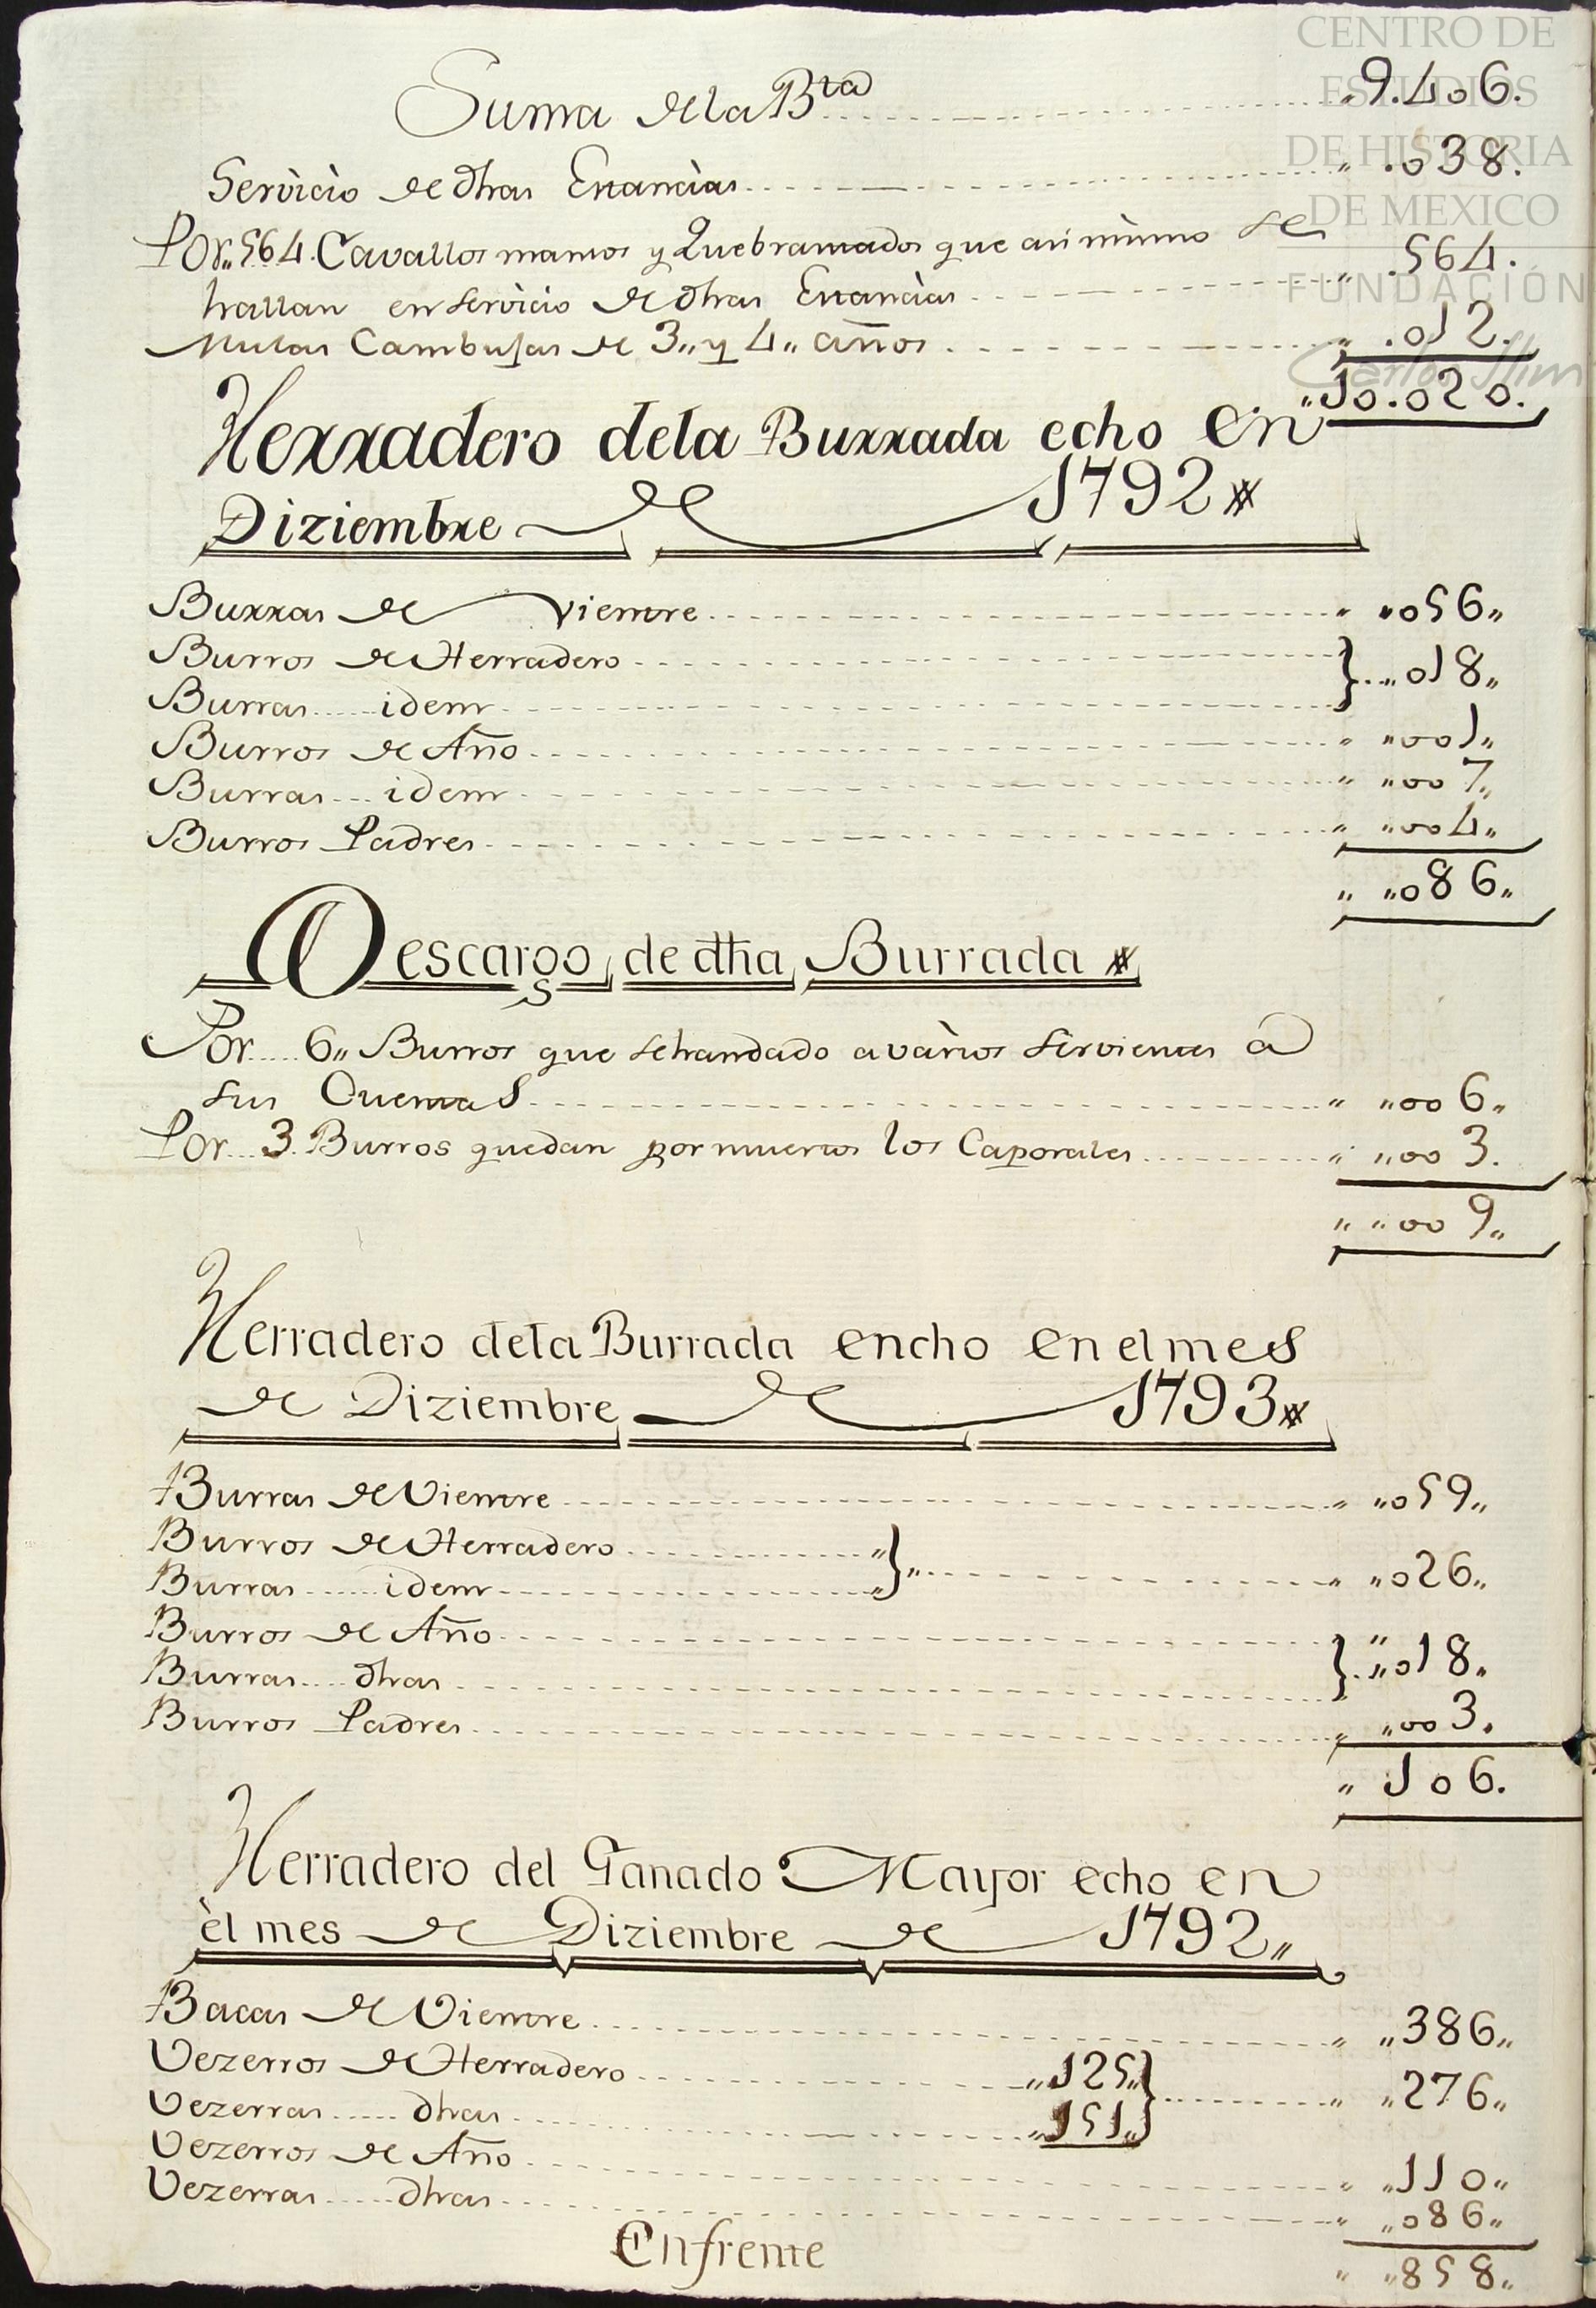 CENTRO DE
ESTUDIOS
DE HISTORIA
DE MEXICO
FUNDACIÓN
Carlos Slim
Suma de la Bta „9.406.
Servicio de dhas Estancias „ .038.
Por„ 564. Cavallos mansos y Quebrantados que asi mismo se
hallan en servicio de dhas Estancias „ .564.
Mulas Cambujas de 3„ y 4„ años „ .012.
„10.020.
Herradero dela Burrada echo en
Diziembre de 1792
Burras de Vientre „ „056„
Burros de Herradero
Burras idem } „018„
Burros de Año „ „001„
Burras idem „ „007„
Burros Padres „ „004„
„ „086„
Descargo de dha Burrada
Por 6„ Burros que sehandado avàrios sirvientes à
sus Cuentas „ „006„
Por 3. Burros quedan por muertos los Caporales „ „003.
„ „009„
Herradero dela Burrada encho en el mes
de Diziembre de 1793
Burras de Vientre „ „059„
Burros de Herradero „
Burras idem „} „ „026„
Burros de Año
Burras dhas } „018„
Burros Padres „ „003.
„ 106.
Herradero del Ganado Mayor echo en
èl mes de Diziembre de 1792„
Bacas de Vientre „ „386„
Vezerros de Herradero „125„
Vezerras dhas „151„ } „ „276„
Vezerros de Año „ „110„
Vezerras dhas „ „086„
Enfrente „ „858„